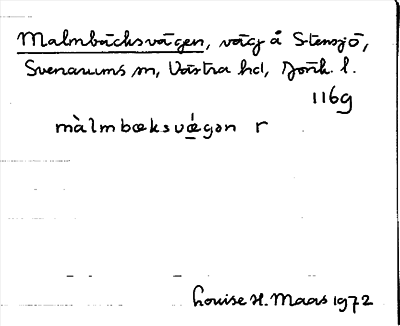 Malmbäcksvägen, väg å Stensjö,
Svenarums sn, Västra hd, Jönk. l.
116g
màlmbæksvǽgən r
Louise H. Maas 1972